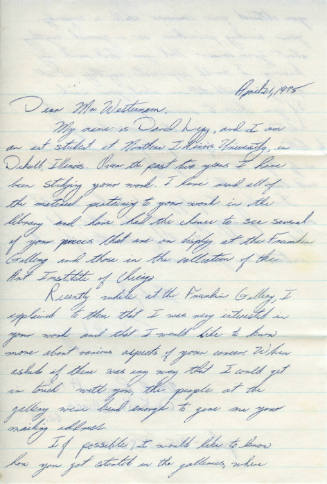 April 21, 1975
Dear Mr. Westermann,
My name is David and I am
an art student at Northern Illinois University, in
Dekalb, Illinois. Over the past two years I have
been studying your work. I have read all of
the material pertaining to your work in the
library and have had the chance to see several
of your pieces that are on display at the Frumkin
Gallery and those in the collection of the
Art Institute of Chicago.
Recently while at the Frumkin Gallery, I
explained to them that I was very interested in
your work and that I would like to know
more about various aspects of your career. When
asked of there was any way that I could get
in touch with you, the people at the
gallery were kind enough to give me your
mailing address.
If possible, I would like to know
how you got started in the galleries, where